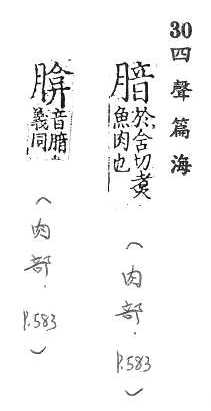 30 四聲篇海
腤 於含切煑
魚肉也
(肉部. P.583)
音腤
義同
(肉部. P.583)